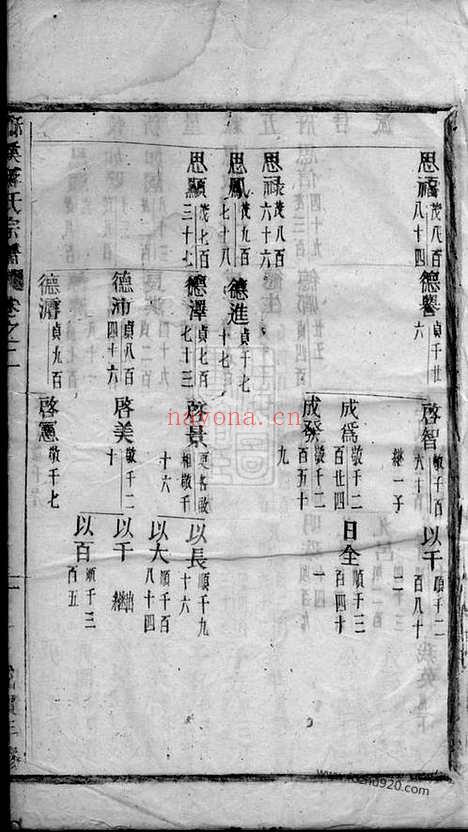 思禧茂八百八十四
德譽貞千廿六
啓智敬千百六十
繼一子
以千順千二百八十二
成為敬千二百廿四
日全順千三百四十一
成發敬千二百五十九
思祿茂八百六十六
思鳳茂九百七十八
德進貞千七十七
思顯茂七百三十七
德澤貞七百七十三
啓景更名啟相敬千十六
以長順千九十六
以大順千百八十四
德沛貞八百四十六
啓美敬千二十
以千出繼
以百順千三百五
德濬貞九百
啓憲敬千七
氏宗譜 卷之二
nayona.cn